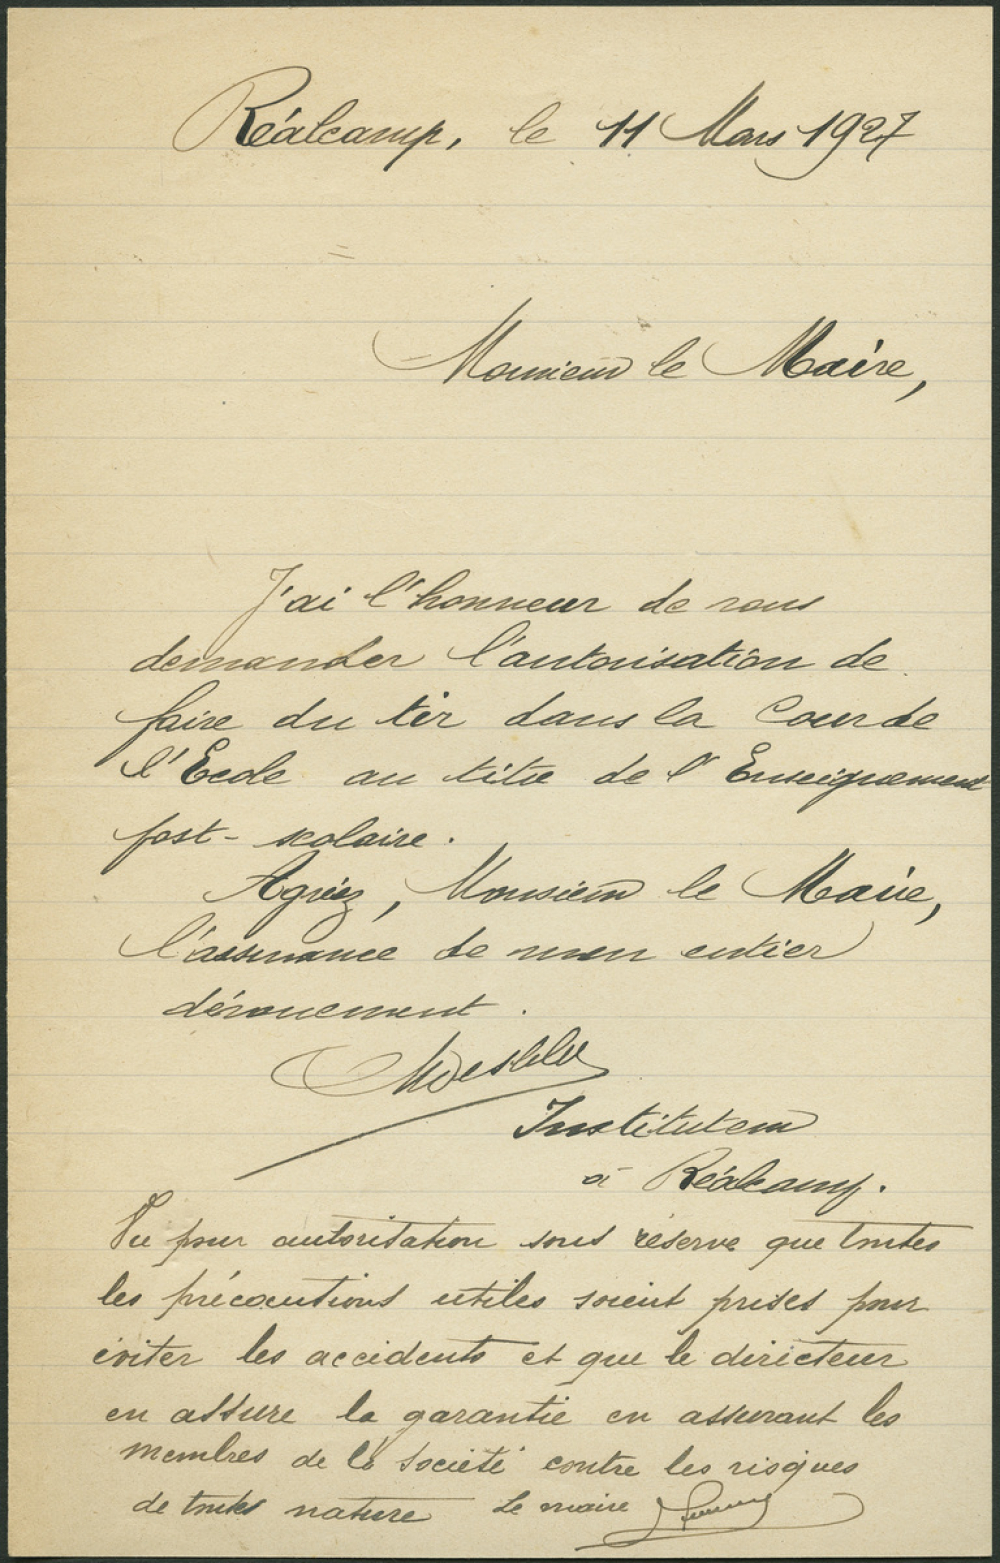 Réalcamp, le 11 Mars 1927
Monsieur le Maire,
J'ai l'honneur de vous
demander l'autorisation de
faire du tir dans la Cour de
l'Ecole au titre de l'Enseignement
post-scolaire.
Agréez, Monsieur le Maire,
l'assurance de mon entier
dévouement.
Instituteur
à Réalcamp.
Vu pour autorisation sous réserve que toutes
les précautions utiles soient prises pour
éviter les accidents et que le directeur
en assure la garantie en assurant les
membres de la Société contre les risques
de toutes nature Le maire